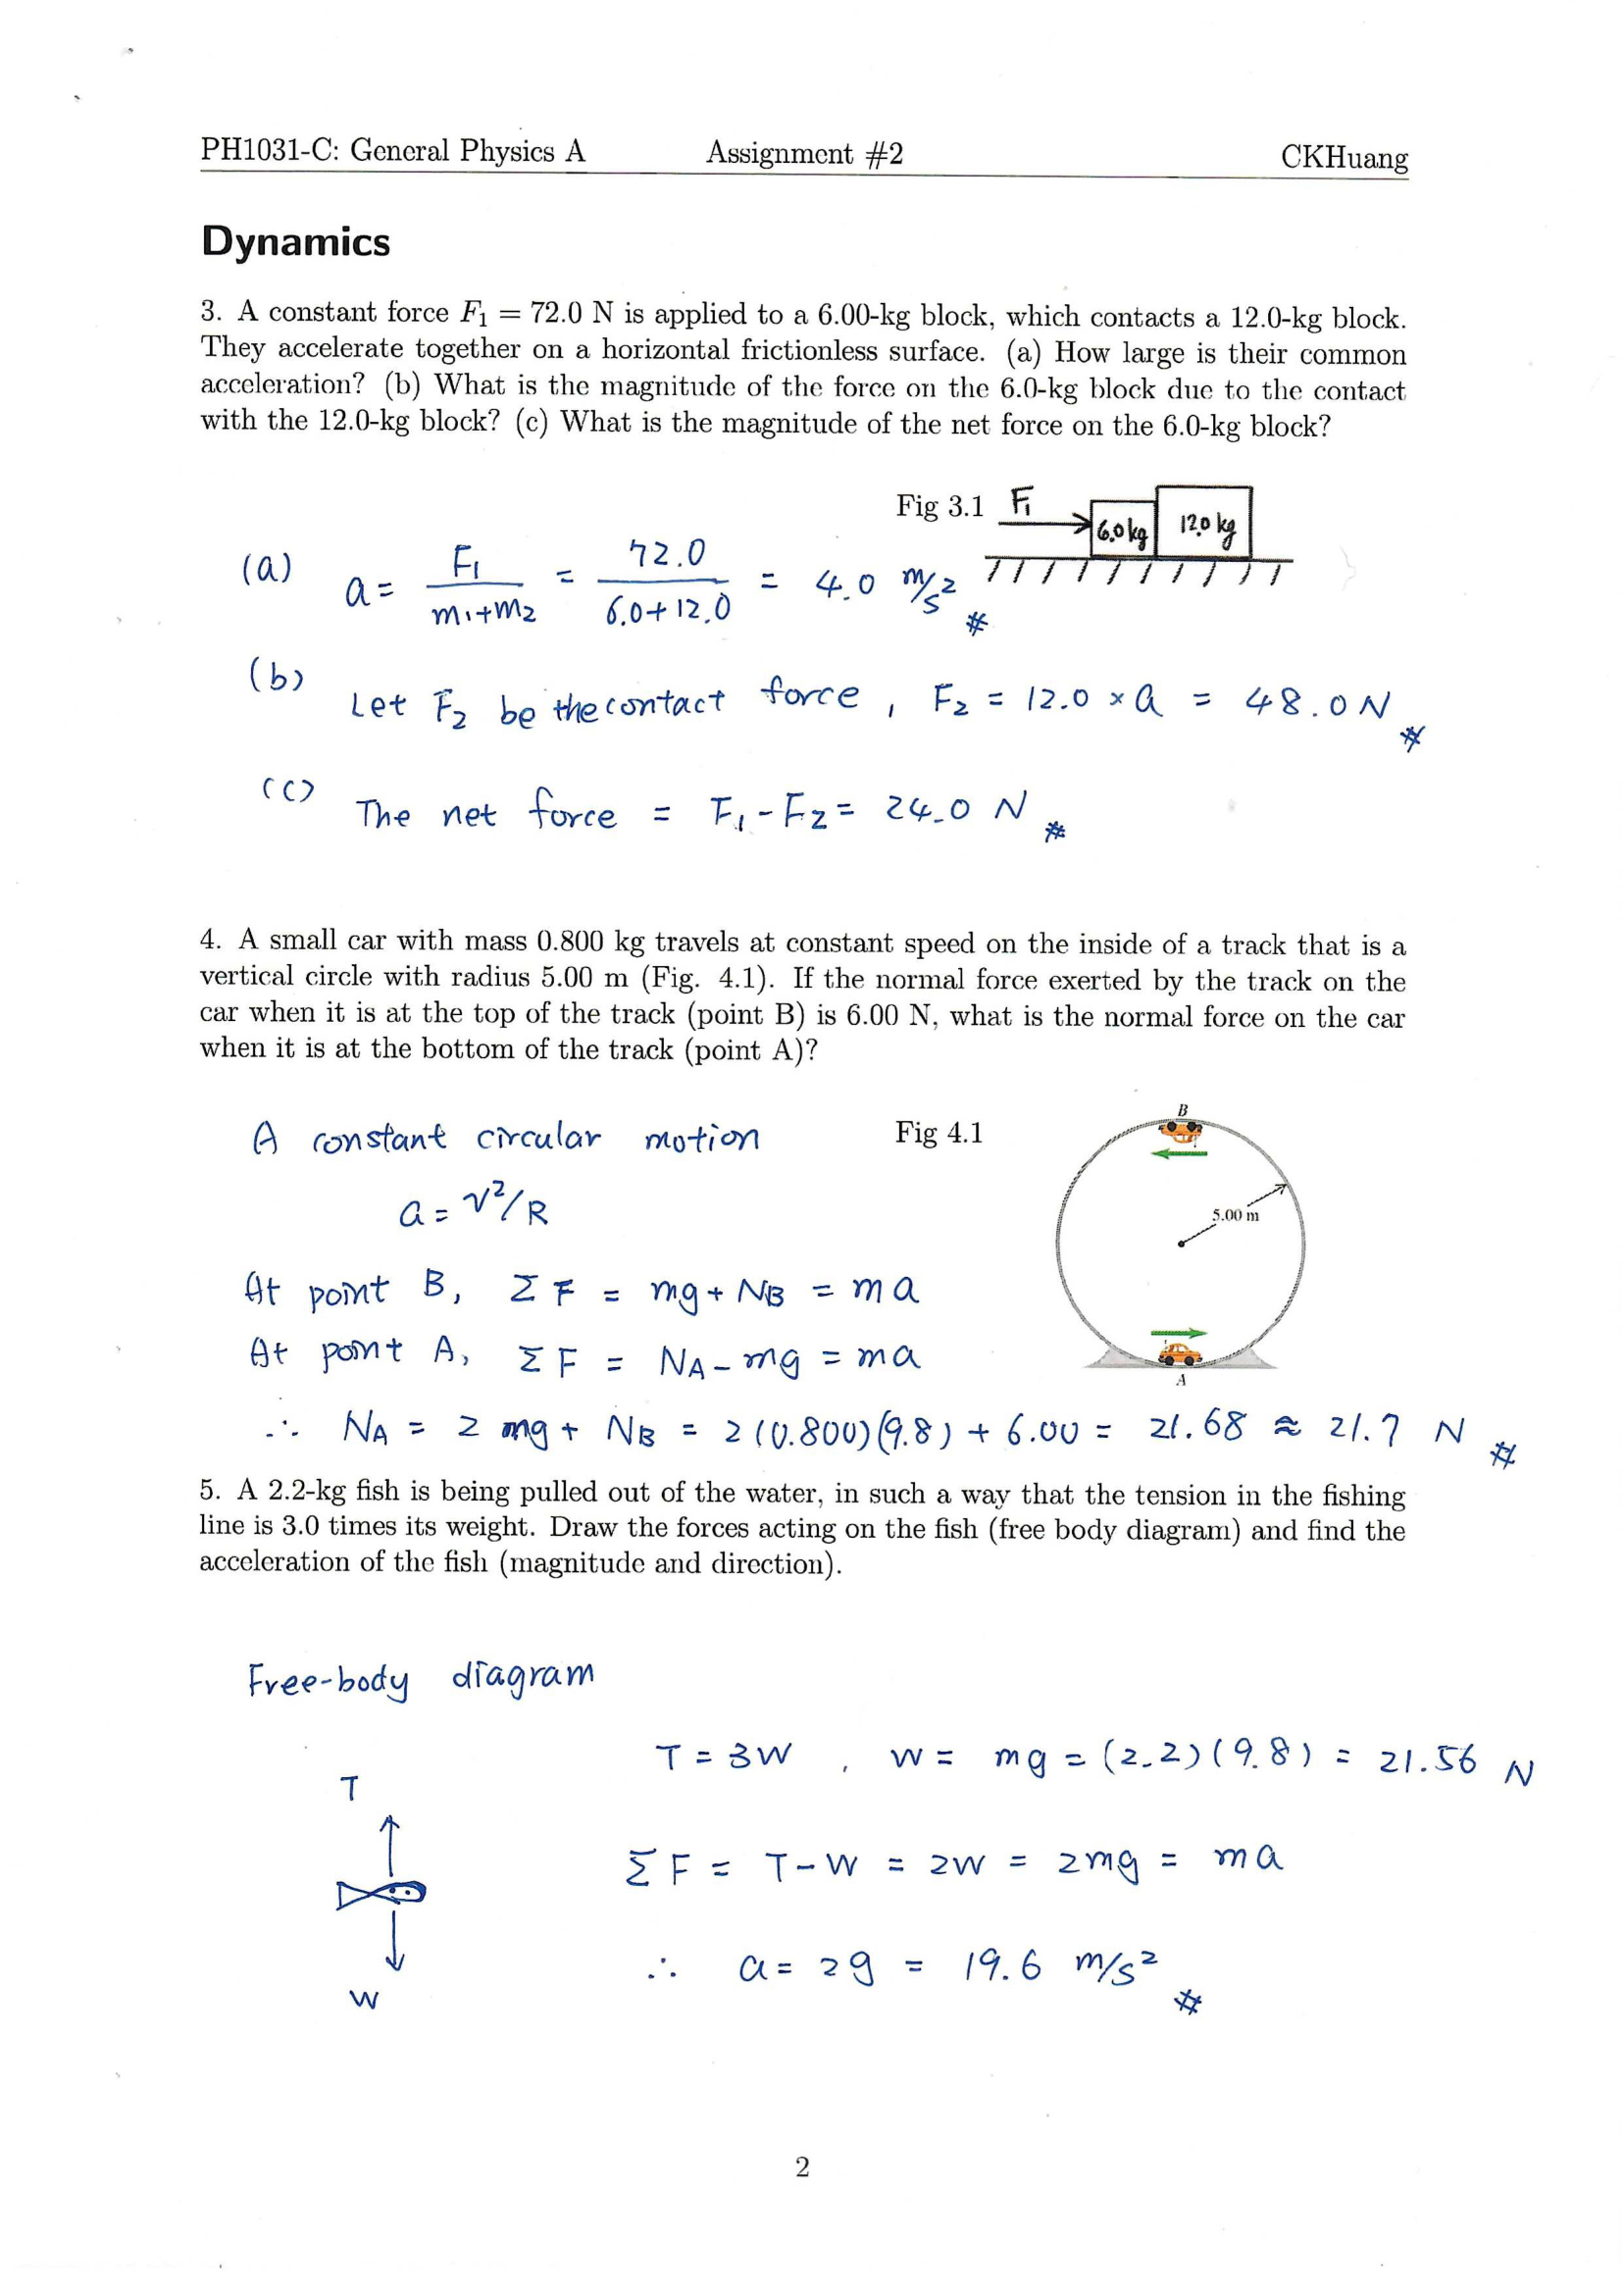 PH1031-C: General Physics A Assignment #2 CKHuang
Dynamics
3. A constant force F₁ = 72.0 N is applied to a 6.00-kg block, which contacts a 12.0-kg block.
They accelerate together on a horizontal frictionless surface. (a) How large is their common
acceleration? (b) What is the magnitude of the force on the 6.0-kg block due to the contact
with the 12.0-kg block? (c) What is the magnitude of the net force on the 6.0-kg block?
Fig 3.1 F₁ 6.0kg 12.0 kg
(a) a = F₁/(m₁+m₂) = 72.0/(6.0+12.0) = 4.0 m/s² #
(b) Let F₂ be the contact force, F₂ = 12.0 × a = 48.0 N #
(c) The net force = F₁ - F₂ = 24.0 N #
4. A small car with mass 0.800 kg travels at constant speed on the inside of a track that is a
vertical circle with radius 5.00 m (Fig. 4.1). If the normal force exerted by the track on the
car when it is at the top of the track (point B) is 6.00 N, what is the normal force on the car
when it is at the bottom of the track (point A)?
A constant circular motion
Fig 4.1
B
5.00 m
A
a = v²/R
At point B, ΣF = mg + N_B = ma
At point A, ΣF = N_A - mg = ma
∴ N_A = 2 mg + N_B = 2(0.800)(9.8) + 6.00 = 21.68 ≈ 21.7 N #
5. A 2.2-kg fish is being pulled out of the water, in such a way that the tension in the fishing
line is 3.0 times its weight. Draw the forces acting on the fish (free body diagram) and find the
acceleration of the fish (magnitude and direction).
Free-body diagram
T = 3W , W = mg = (2.2)(9.8) = 21.56 N
T
ΣF = T - W = 2W = 2mg = ma
∴ a = 2g = 19.6 m/s² #
W
2